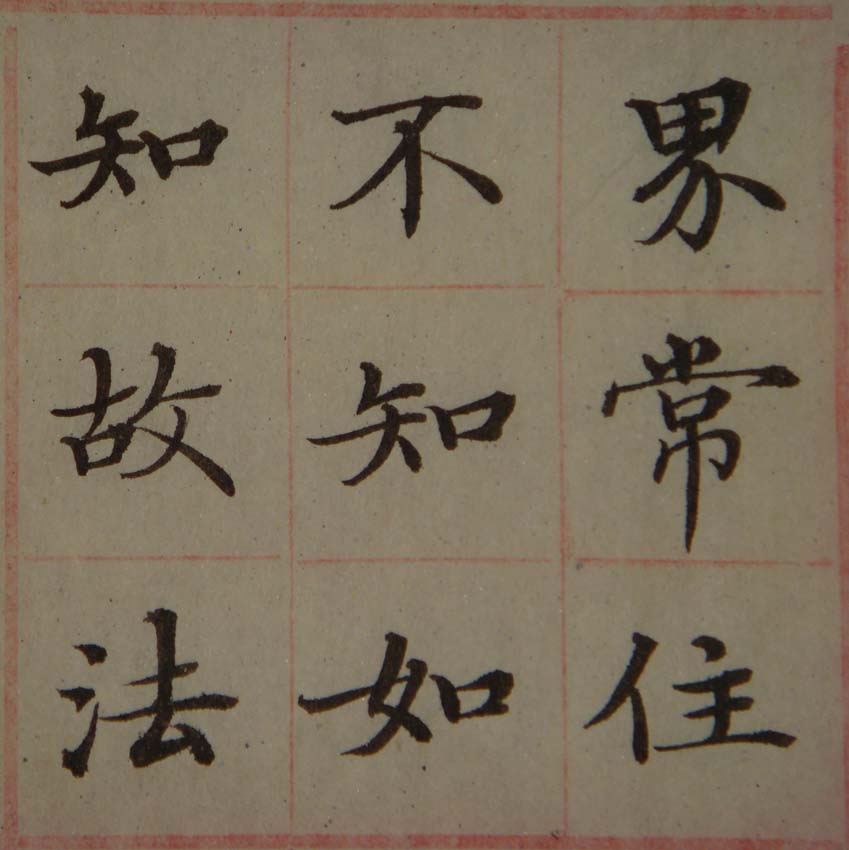 界常住
不知如
知故法